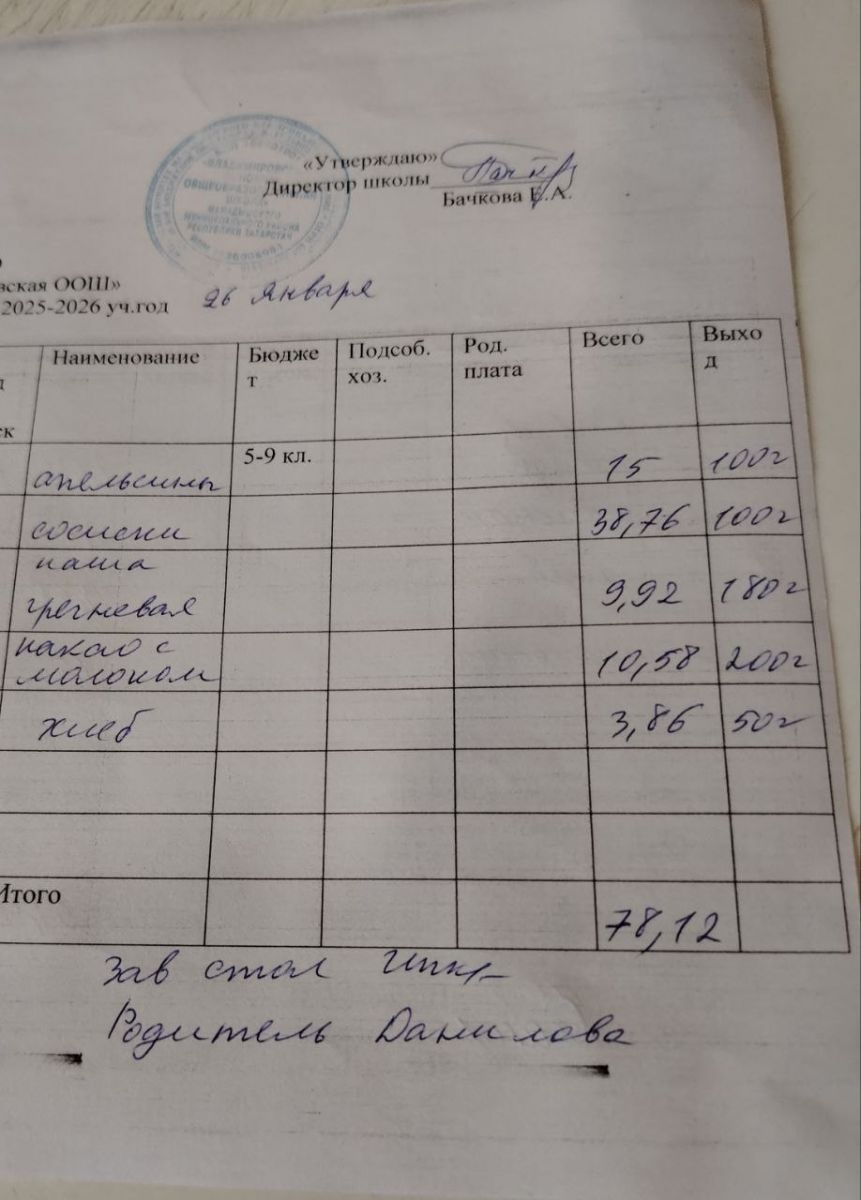 «Утверждаю»
Директор школы
Бачкова Е.А.
ОБЩЕОБРАЗОВАТЕЛЬНАЯ
ШКОЛА
МУНИЦИПАЛЬНОГО РАЙОНА
РЕСПУБЛИКИ ТАТАРСТАН
вская ООШ»
2025-2026 уч.год 26 января
Наименование Бюдже Подсоб. Род. Всего Выхо
т хоз. плата д
ск
5-9 кл.
апельсины 15 100г
сосиски 38,76 100г
каша
гречневая 9,92 180г
какао с
молоком 10,58 200г
хлеб 3,86 50г
Итого 78,12
Зав стол
Родитель Данилова